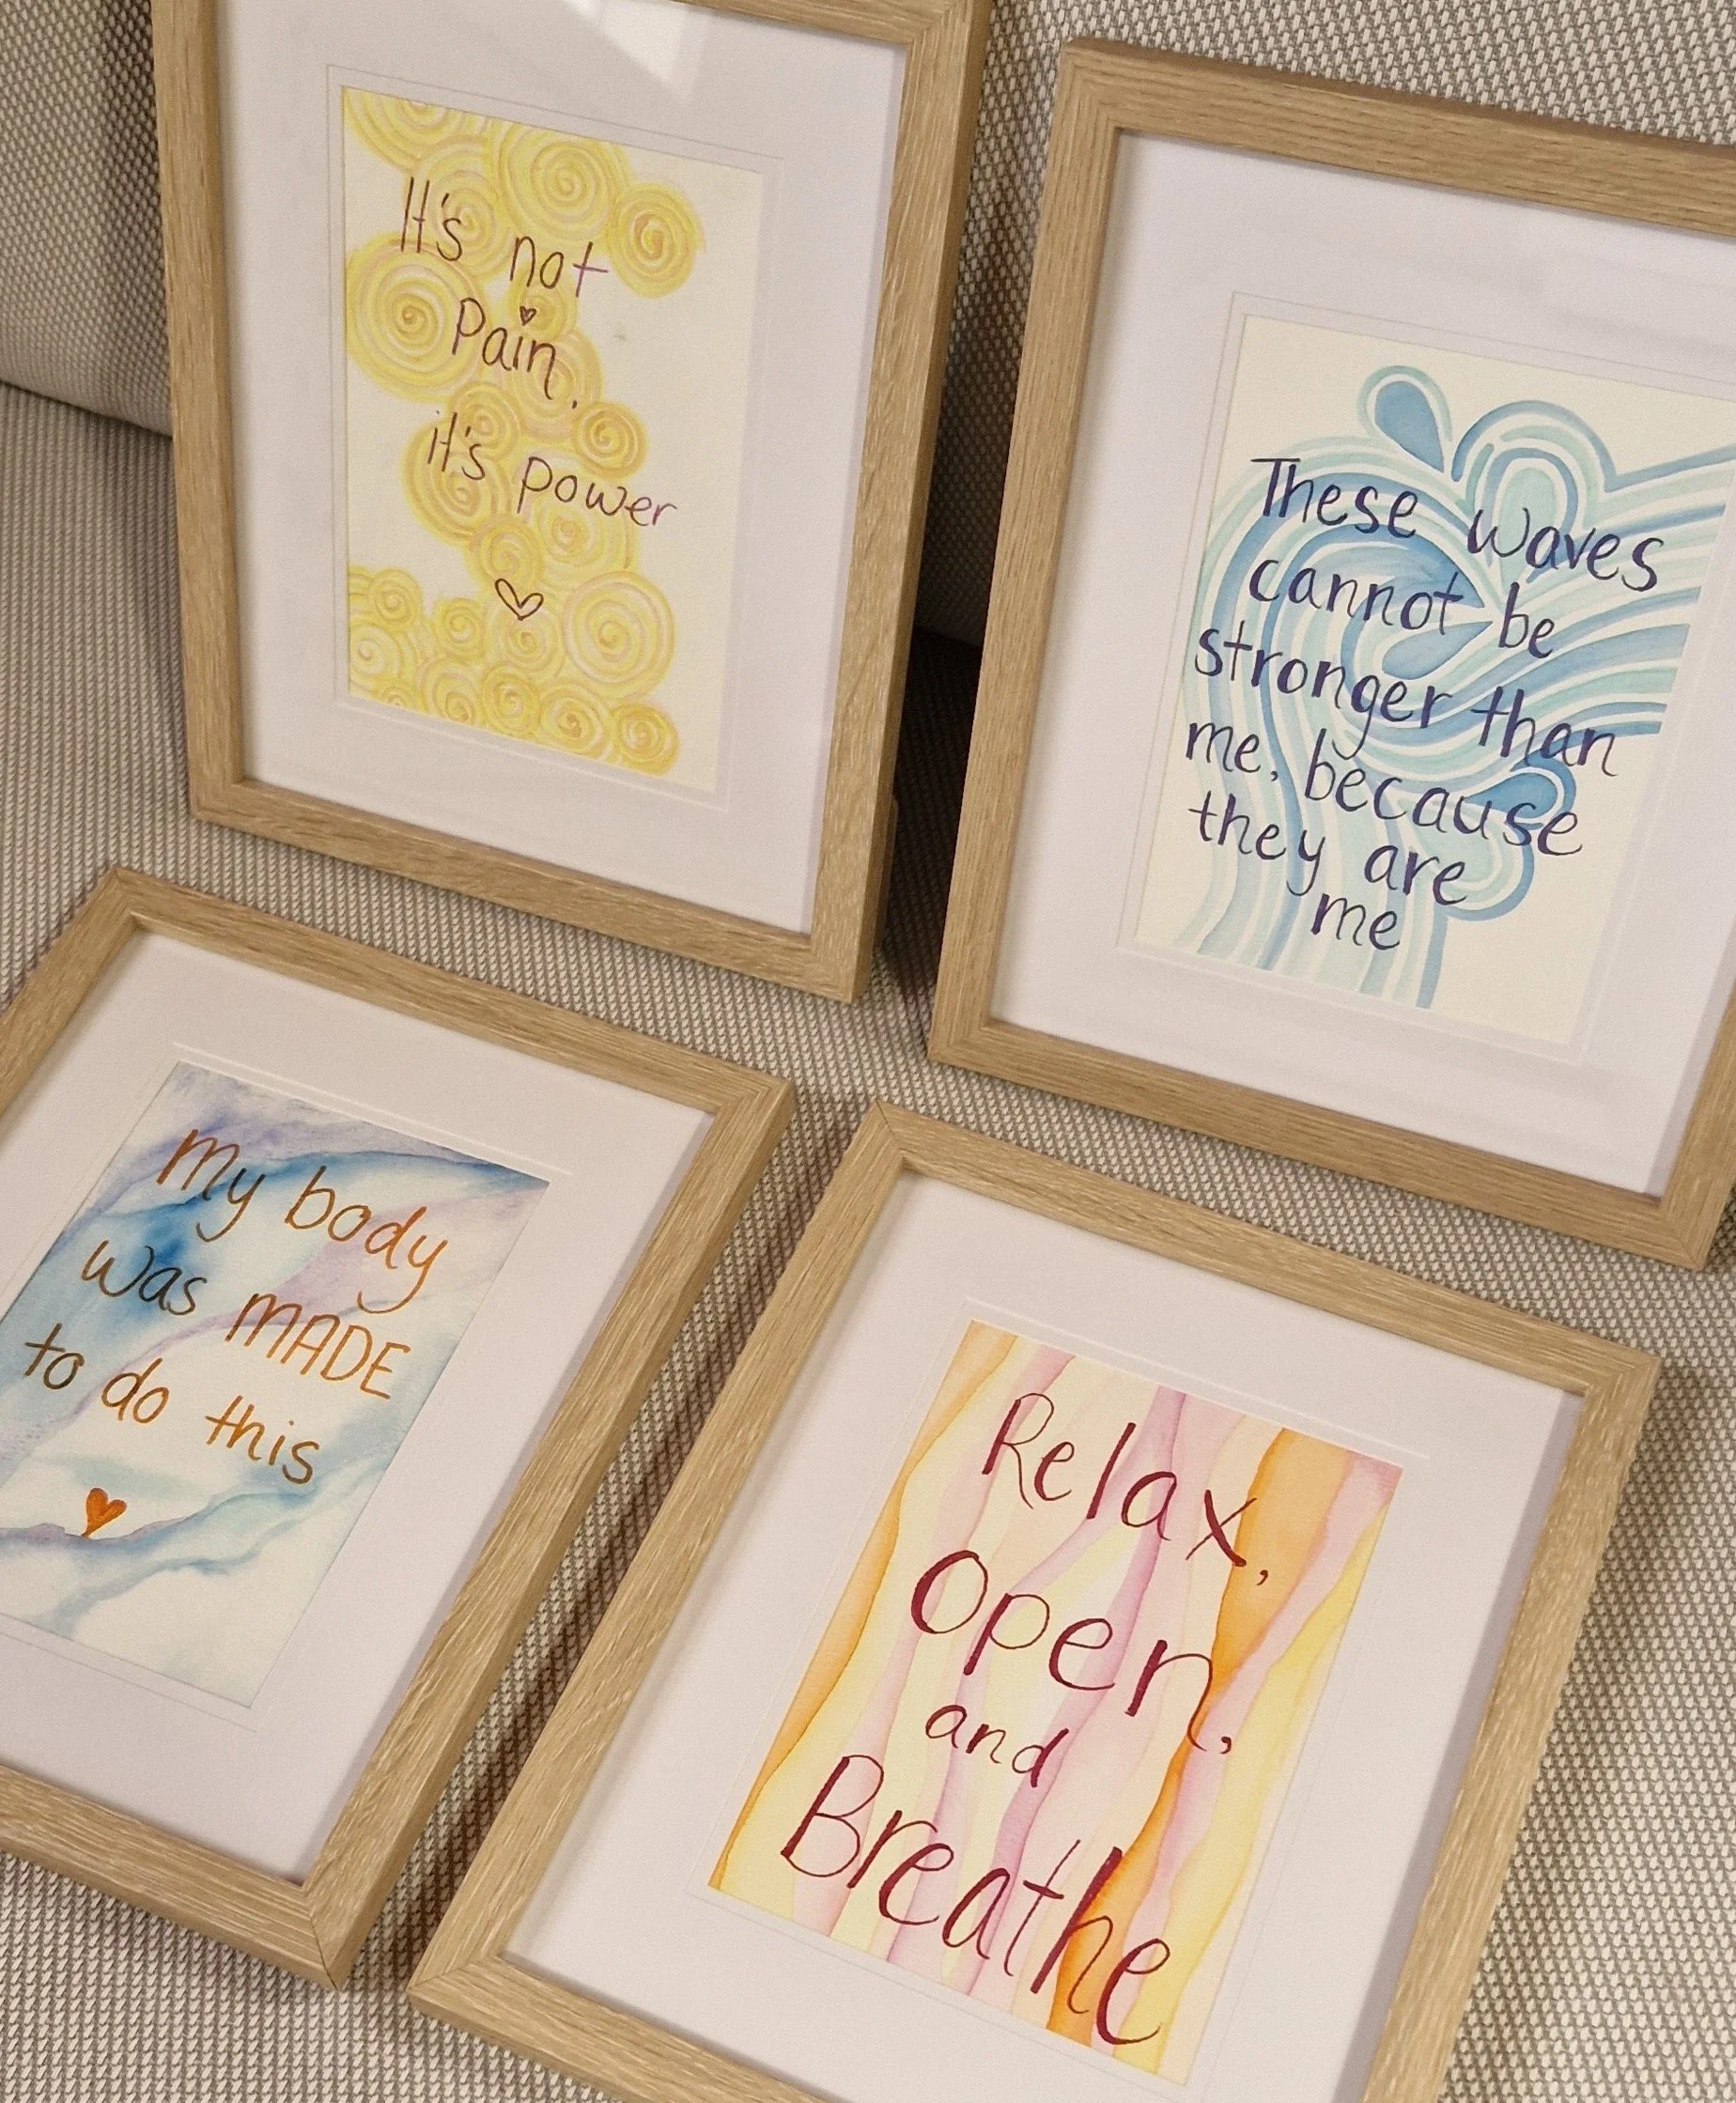 It's not
Pain,
it's power
These waves
cannot be
stronger than
me, because
they are
me
my body
was MADE
to do this
Relax,
Open,
and
Breathe